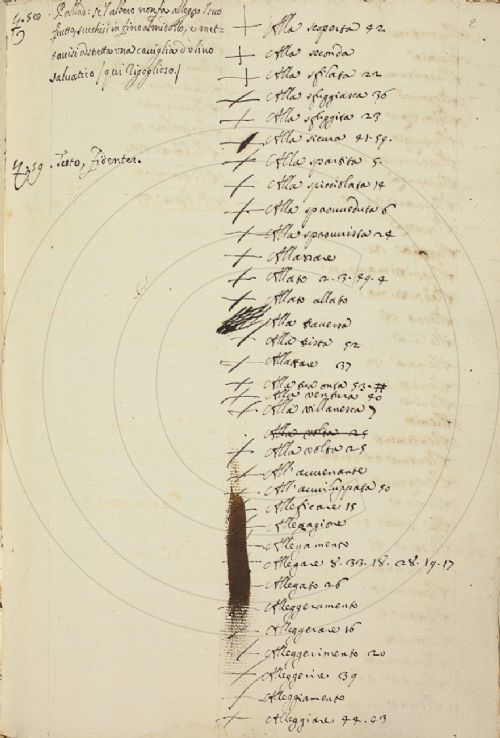 frutto, succhisi infino al midollo, e met-
tavisi
salvatico / qui rigoglioso /
59. Tuto, fidenter.
2
Alla scoperta 42
Alla seconda
Alla sfilata 22
Alla sfuggiasca 36
Alla sfuggita 23
Alla sicura 41.59.
Alla spartita 5.
Alla spicciolata 14
Alla sprovveduta 6
Alla sprovvista 24
Allato 2.3.49.4
Allato allato
Alla traversa
Alla vista 52
Allattare 37
Alla ventura 40
Alla villanesca 7
Alla volta 25
Alla volta 25
All'avvenante
All'avviluppata 50
Alleficare 15
Allegagione
Allegamento
Allegare 8.33.18.28.19.17
Allegato 26
Alleggeramento
Alleggerare 16
Alleggerimento 20
Alleggerire 39
Alleggiamento
Alleggiare 44.43